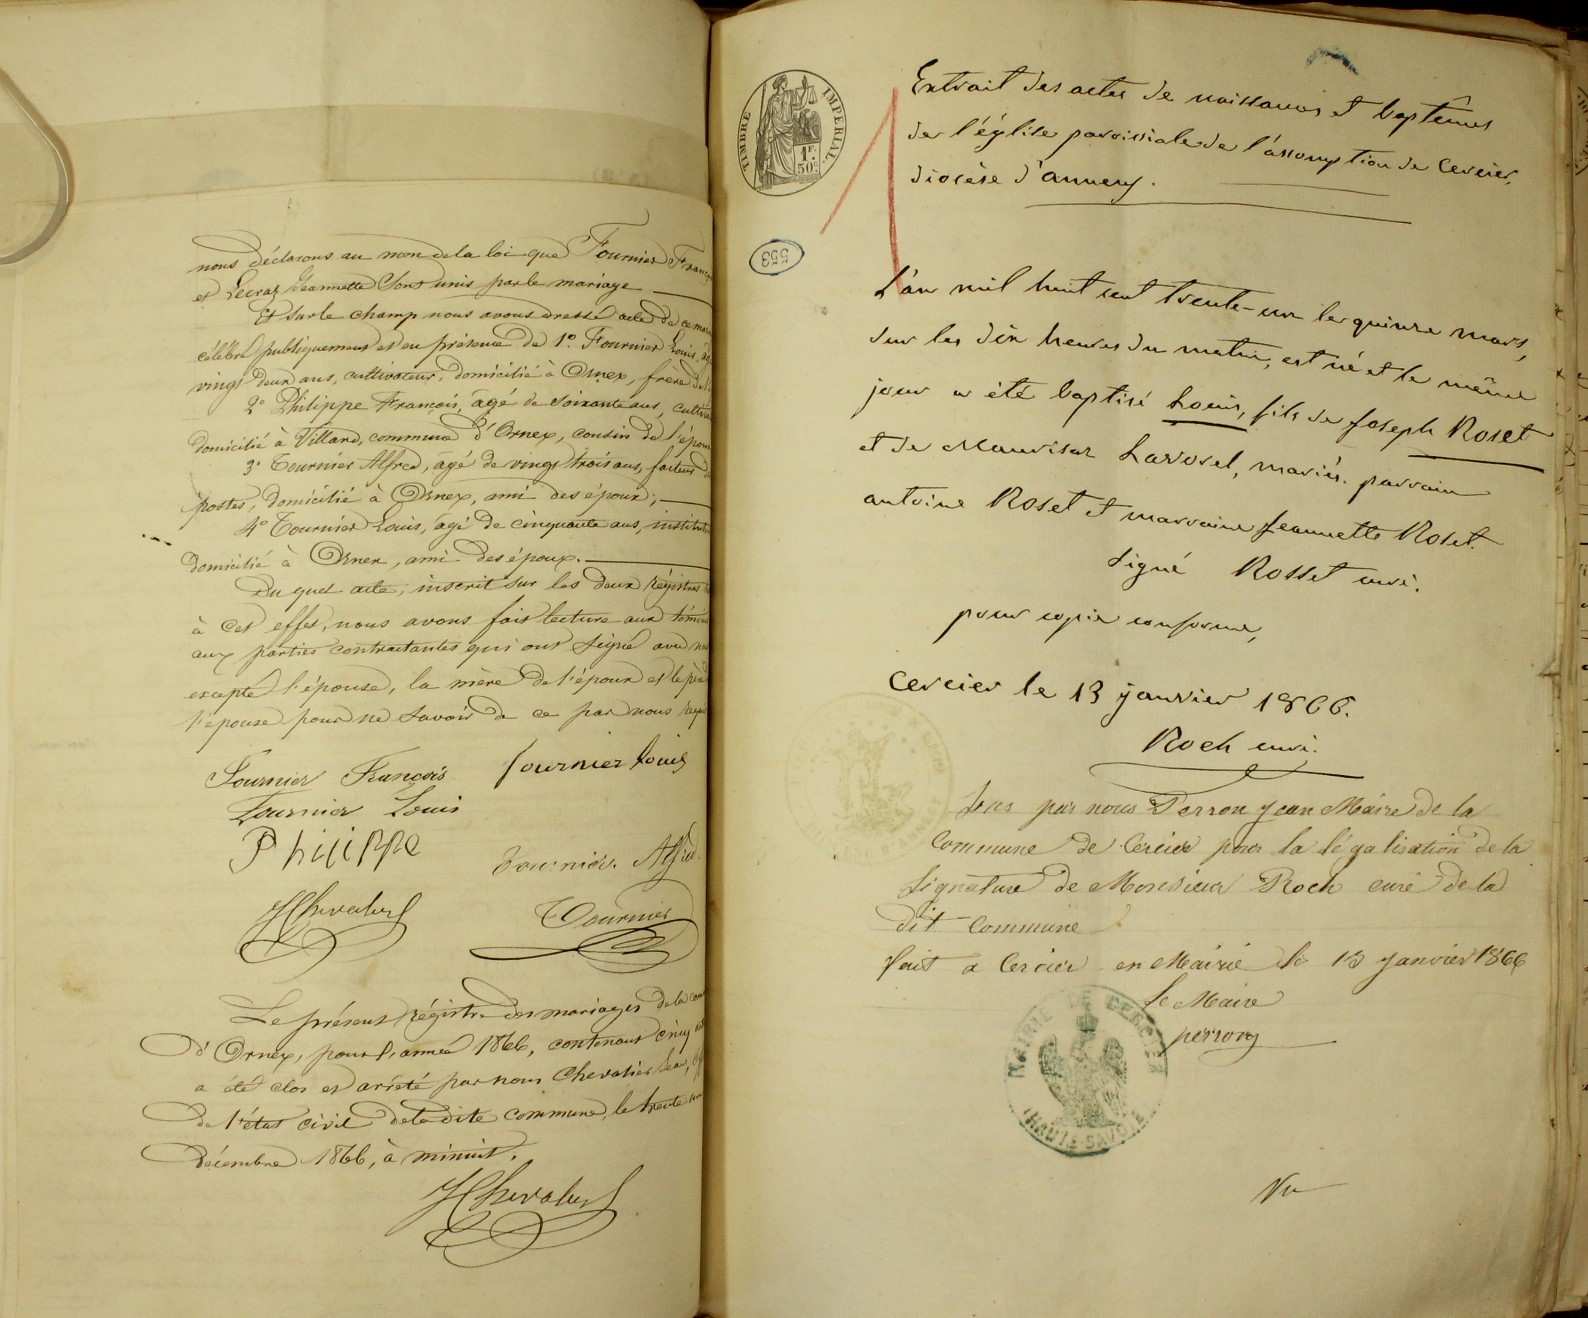 nous déclarons au nom de la loi que Fournier Franç
et Lecraz Jeannette sont unis par le mariage
Et sur le champ nous avons dressé acte de ce mar
célébré publiquement et en présence de 1º. Fournier Louis,
vingt deux ans, cultivateur, domicilié à Ornex, frère de l'
2º Philippe François, âgé de soixante ans, cultiv
domicilié à Villard, commune d'Ornex, cousin de l'épou
3º Tournier Alfred, âgé de vingt trois ans, facteur d
postes, domicilié à Ornex, ami des époux;
4º Tournier Louis, âgé de cinquante ans, institut
domicilié à Ornex, ami des époux.
Du quel acte, inscrit sur les deux régistres
à cet effet, nous avons fait lecture aux témoi
aux parties contractantes qui ont signé avec n
excepté l'épouse, la mère de l'époux et le pèr
l'épouse pour ne savoir de ce par nous req
Fournier François fournier louis
Tournier Louis
Philippe Tournier. Alfred.
JChevalier Tournier
Le présent régistre des mariages de la com
d'Ornex, pour l'année 1866, contenant cinq
a été clos et arrêté par nous Chevalier
de l'état civil de la dite commune, le trente
décembre 1866, à minuit.
JChevalier
TIMBRE IMPERIAL
1F.
50c
553
Extrait des actes de naissances et baptêmes
de l'église paroissiale de l'assomption de Cercier,
diocèse d'annecy.
L'an mil huit cent trente-un le quinze mars,
sur les dix heures du matin, est né et le même
jour a été baptisé Louis, fils de Joseph Roset
et de Maurisaz Lavorel, mariés. parrain
antoine Roset et marraine Jeannette Roset.
Signé Rosset curé.
pour copie conforme,
Cercier le 13 janvier 1866.
Roch curé.
Vu par nous Perron Jean Maire de la
Commune de Cercier pour la légalisation de la
signature de Monsieur Roch curé de la
dit commune
fait a Cercier en Mairie le 13 Janvier 1866
Le Maire
perron
MAIRIE DE CERCIER
(HAUTE-SAVOIE)
Vu